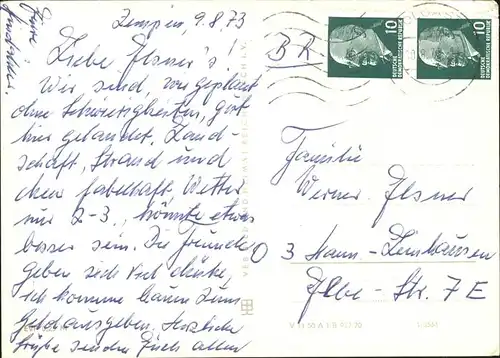 Zempin, 9.8.73
Liebe Elsner's!
Wir sind, wie geplant
ohne Schwierigkeiten, gut
hier gelandet. Land-
schaft, Strand und
Essen fabelhaft, Wetter
nur 2-3, könnte etwas
besser sein. Die Freunde
geben sich viel Mühe,
ich komme kaum zum
Geldausgeben. Herzliche
Grüße senden Euch allen
Eure
BRD
10
DEUTSCHE DEMOKRATISCHE REPUBLIK
10
DEUTSCHE DEMOKRATISCHE REPUBLIK
Familie
Werner Elsner
3 Hann.-
Elbe-Str. 7E